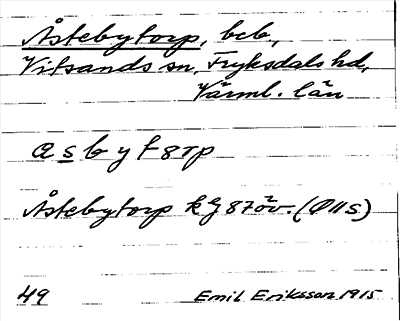 Åstebytorp, beb.,
Vitsands sn, Fryksdals hd,
Värml. län
a s b y f 8 r p
Åstebytorp kg 87 öv. (Ø11S)
49
Emil Eriksson 1915